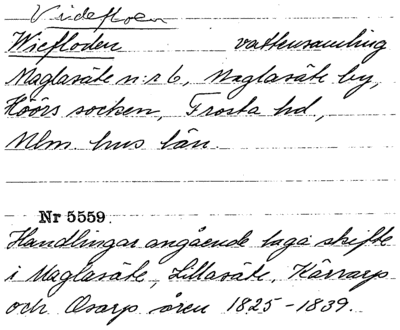 Videfloen
Wiefloden vattensamling
Maglasäte n:r 6, Maglasäte by,
Höörs socken, Frosta hd,
Mlm. hus län.
Nr 5559.
Handlingar angående laga skifte
i Maglasäte, Lillasäte, Kärrarp
och Osarp åren 1825-1839.